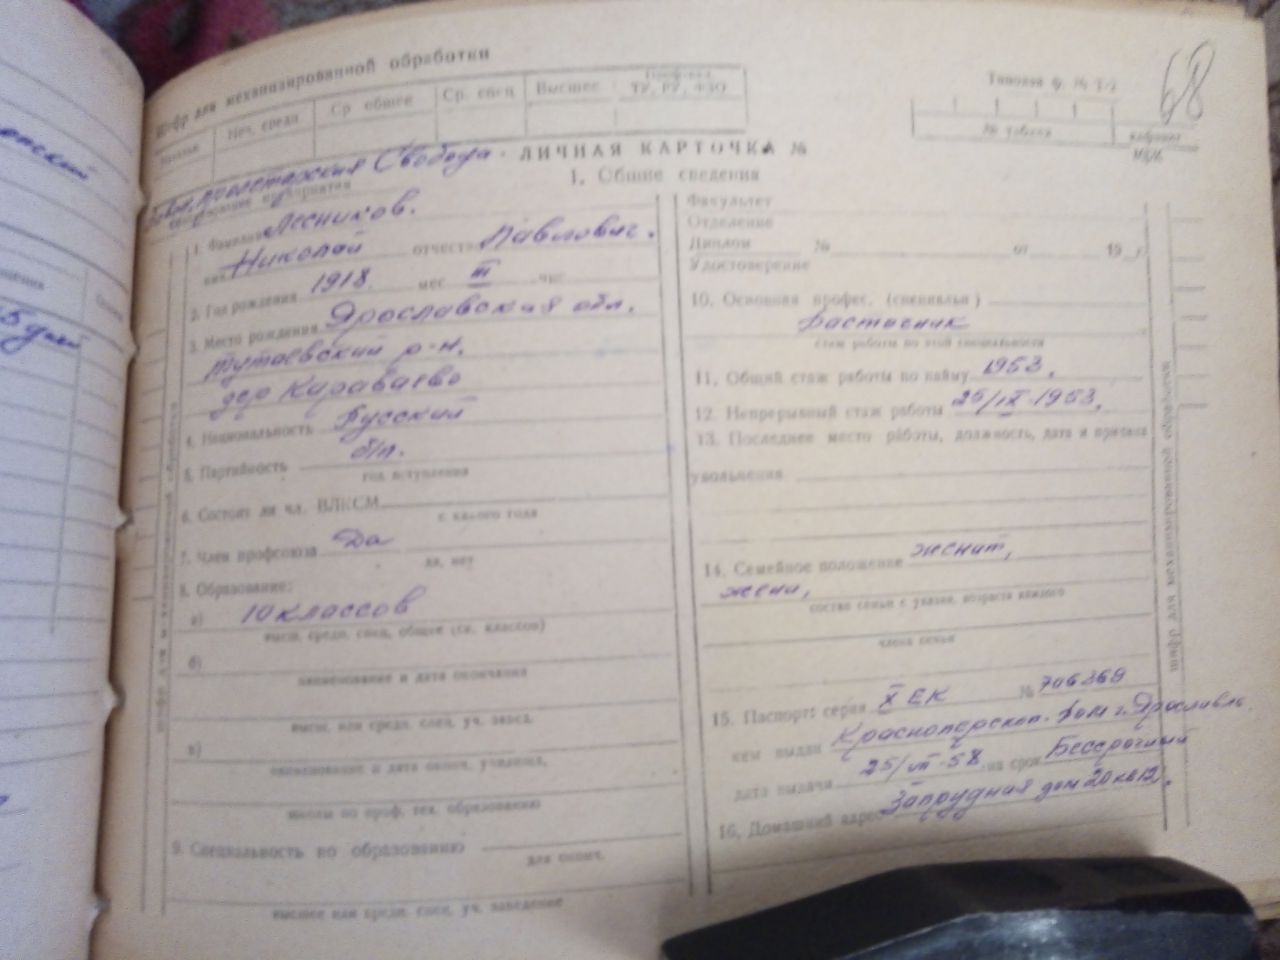 Шифр для механизированной обработки
Нач. средн
Ср общее
Ср. спец
Высшее
ТУ, РУ, ФЗО
Типовая ф. № Т-2
№ табеля
68
Пролетарская Свобода.
ЛИЧНАЯ КАРТОЧКА №
1. Общие сведения
1. Фамилия Лесников.
имя Николай отчество Павлович.
2. Год рождения 1918. мес III
3. Место рождения Ярославская обл.
Тутаевский р-н.
дер Караваево
4. Национальность Русский
5. Партийность б/п.
год вступления
6. Состоит ли чл. ВЛКСМ
с какого года
7. Член профсоюза Да
да, нет
8. Образование:
а) 10 классов
высш. средн. спец, общее (ск. классов)
б)
наименование и дата окончания
высш. или средн. спец. уч. завед.
в)
наименование и дата оконч. училища,
школы по проф. тех. образованию
9. Специальность по образованию
для оконч.
высшее или средн. спец, уч. заведение
Факультет
Отделение
Диплом № от 19 г.
Удостоверение
10. Основная профес. (специальн)
стаж работы по этой специальности
11. Общий стаж работы по найму 1953.
12. Непрерывный стаж работы 25/IX-1953.
13. Последнее место работы, должность, дата и причина
увольнения
14. Семейное положение женат,
жена,
состав семьи с указан. возраста каждого
члена семьи
15. Паспорт: серия X ЕК № 706369
кем выдан Красноперекоп. РОМ г. Ярославль
дата выдачи 25/VII-58 на срок Бессрочный
16. Домашний адрес Запрудная дом 20 кв 12.
шифр для механизированной обработки